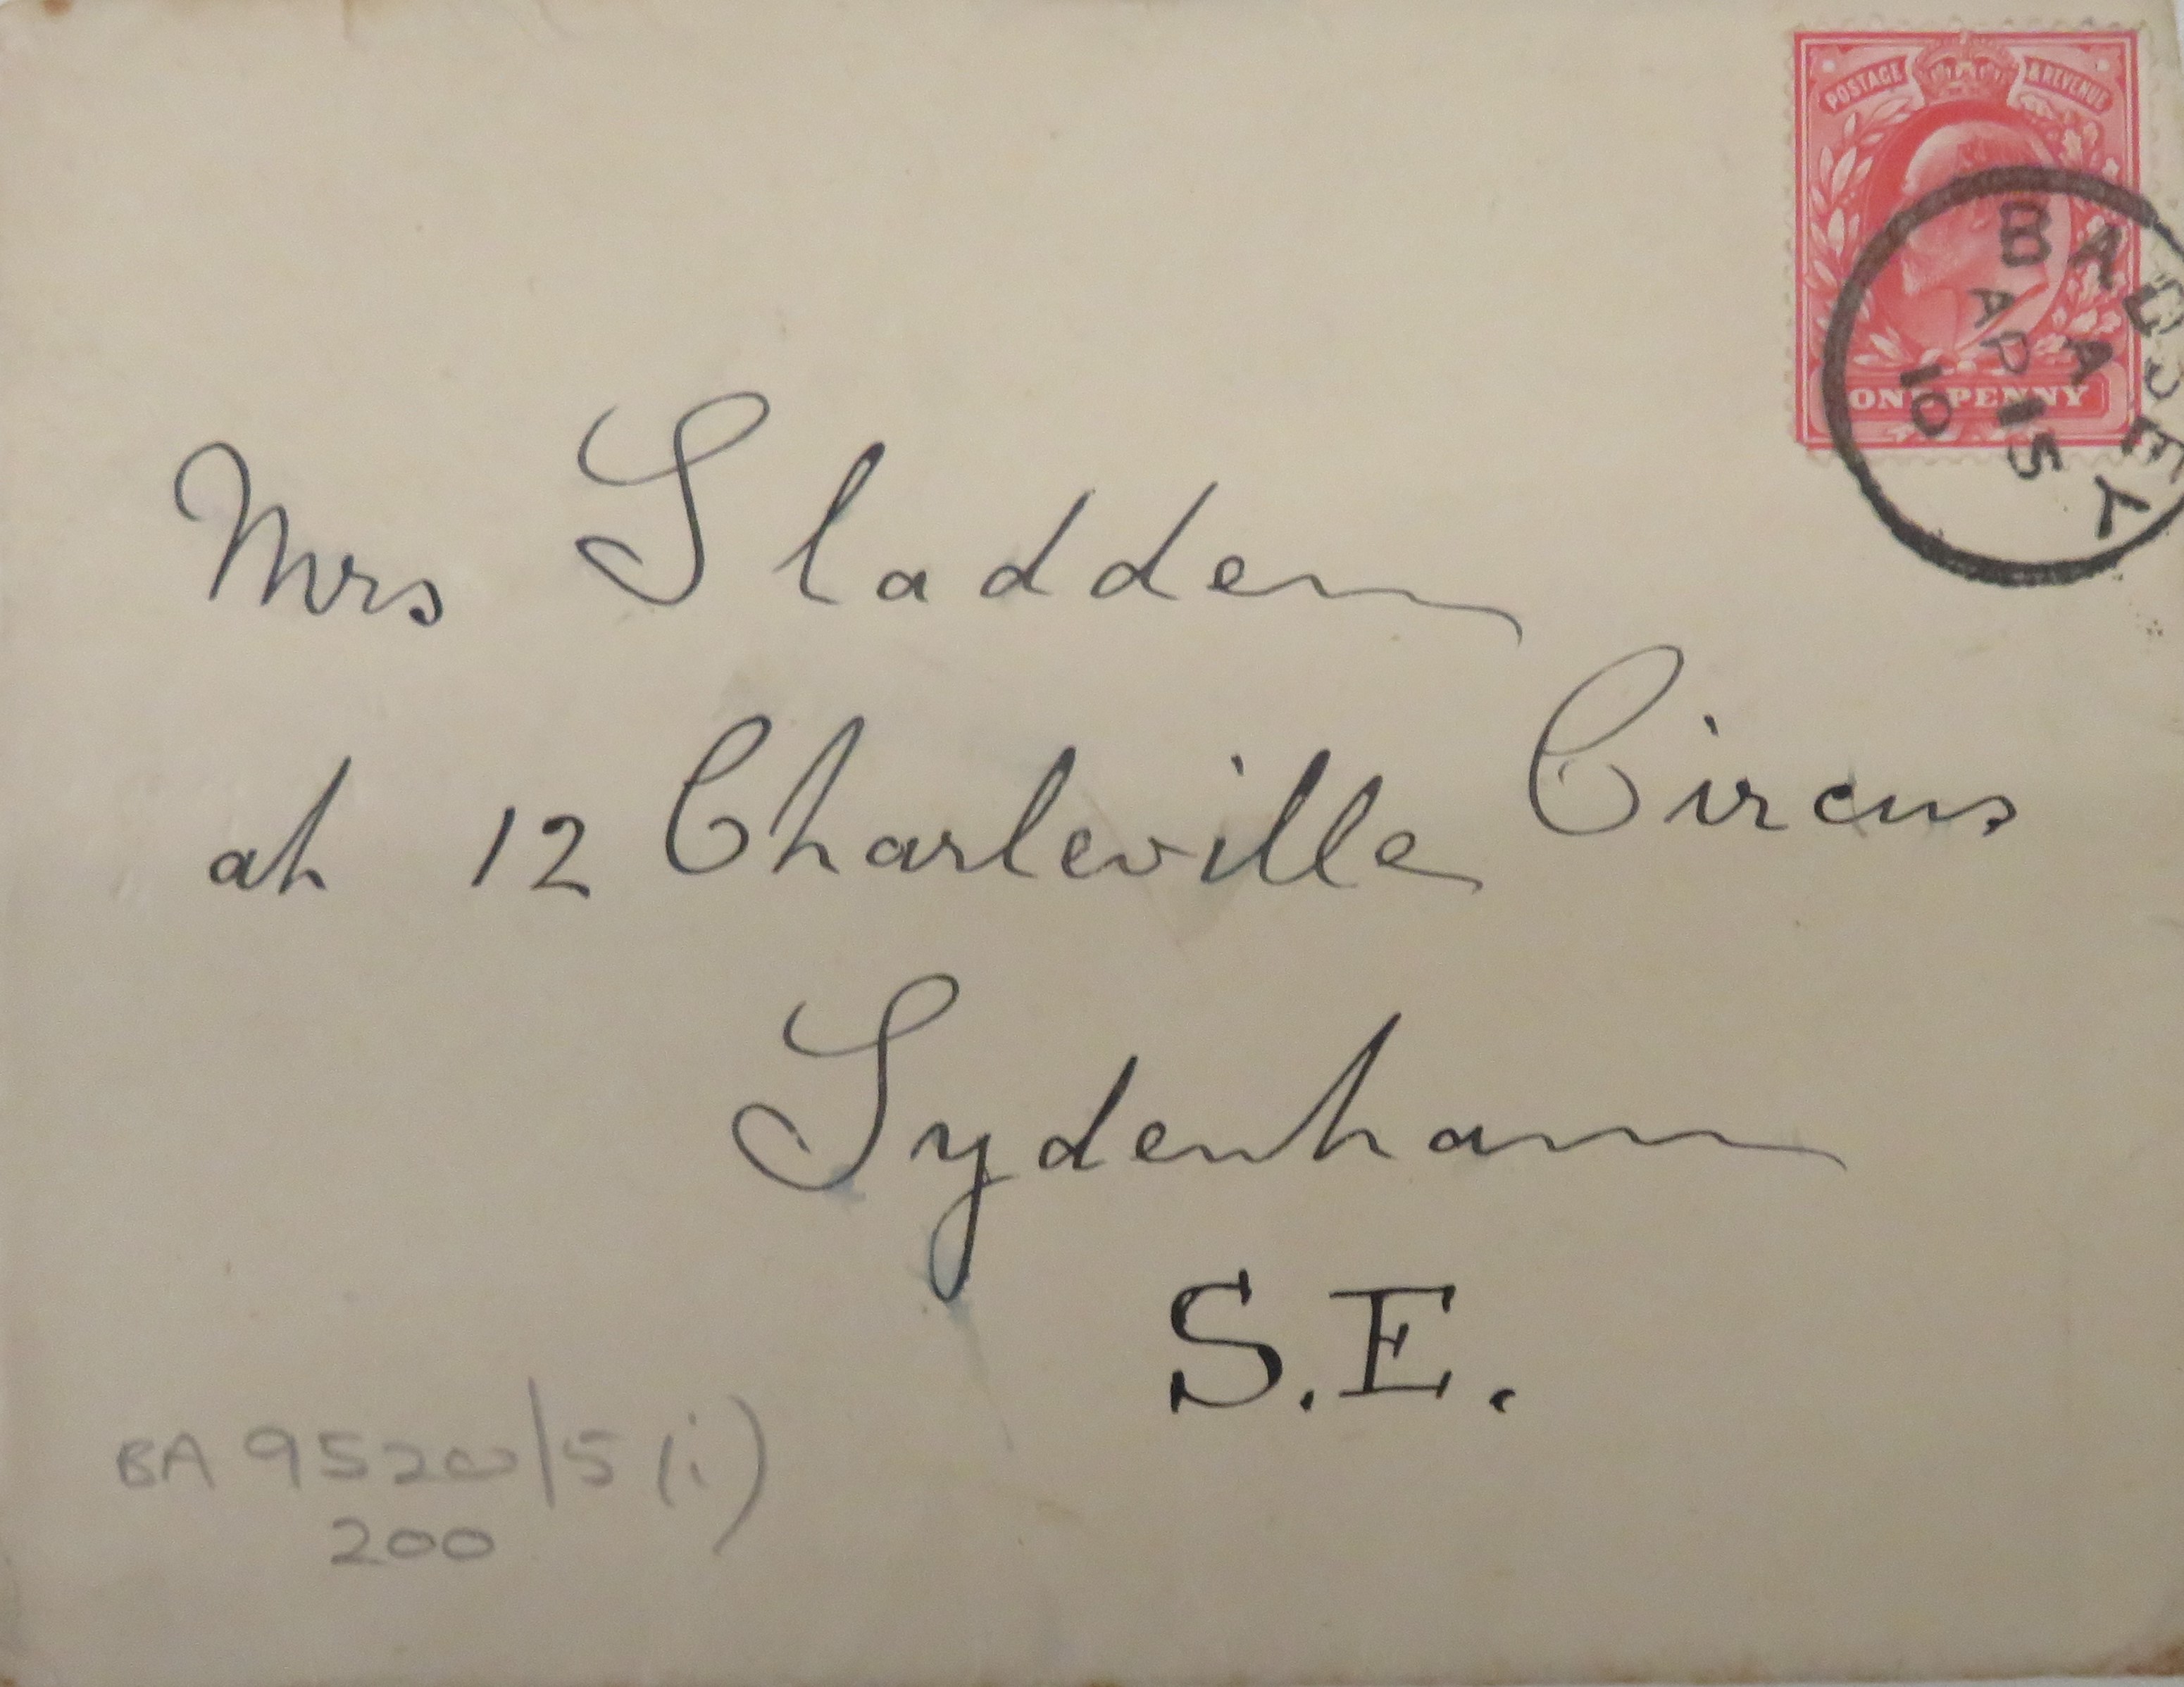 POSTAGE & REVENUE
ONE PENNY
BADSEY
A
AP 15
10
Mrs Sladden
at 12 Charleville Circus
Sydenham
S.E.
BA 9520/5 (i)
200